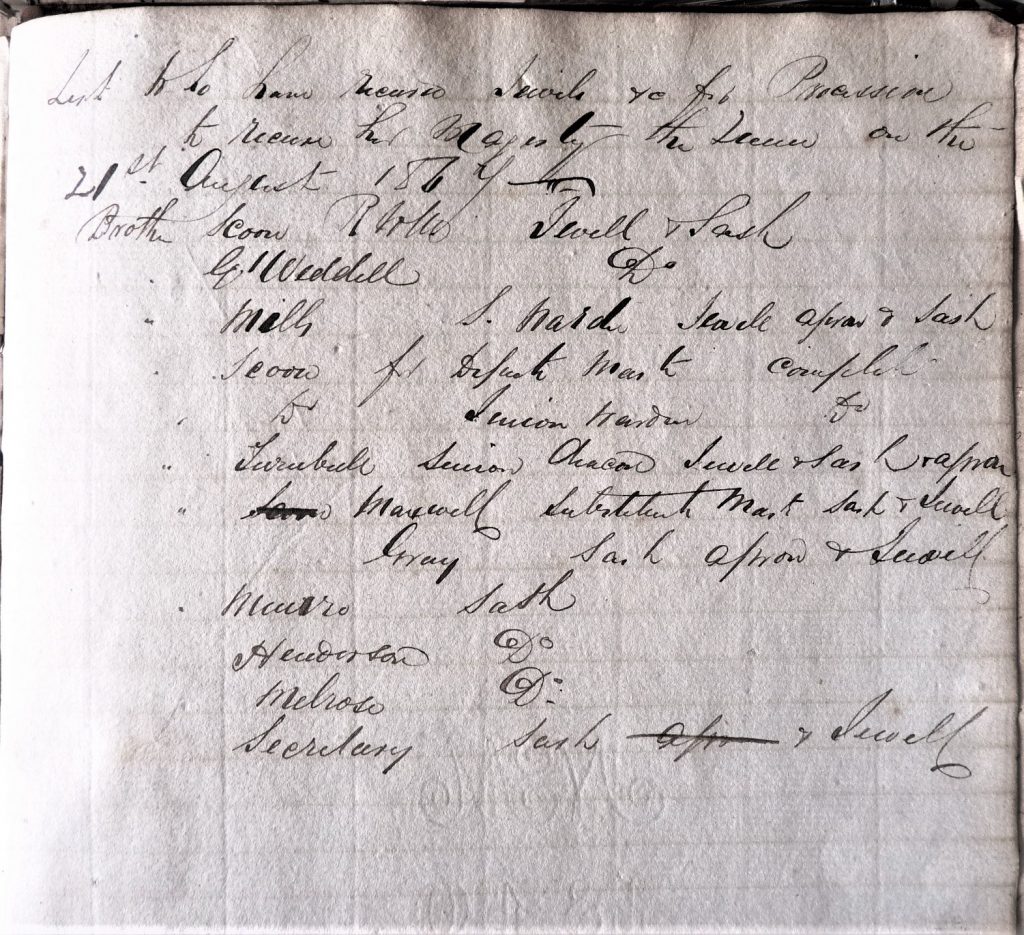 List who have received Jewels &c for Procession
to receive her Majesty the Queen on the
21st August 1867
Brother Scoon RWM Jewell & Sash
" G Weddell Do
" Mills S. Warden Jewell apron & Sash
" Scoon for Depute Mast complete
" Do Senior Warden Do
" Turnbull Senior Deacon Jewell & Sash & apron
" Scoon Maxwell Substitute Mast Sash & Jewell
Gray Sash apron & Jewell
" Munro Sash
Henderson Do
Melrose Do
Secretary Sash apron & Jewell